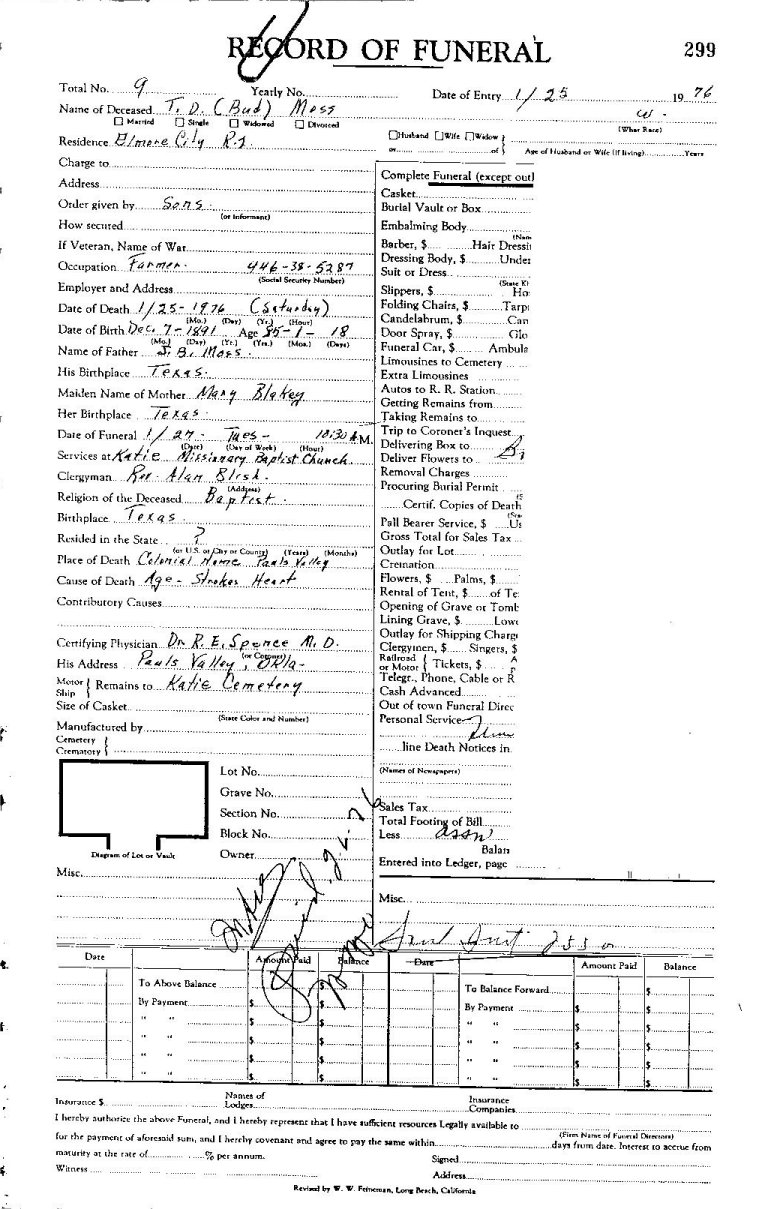 RECORD OF FUNERAL 299
Total No. 9 Yearly No. Date of Entry 1/25 19 76
Name of Deceased T. D. (Bud) Moss W.
Married Single Widowed Divorced (What Race)
Residence Elmore City R-1 Husband Wife Widow
or of Age of Husband or Wife (If living) Years
Charge to
Address
Order given by Sons.
(or Informant)
How secured
If Veteran, Name of War
Occupation Farmer. 446-38-5287
(Social Security Number)
Employer and Address
Date of Death 1/25-1976 (Saturday)
(Mo.) (Day) (Yr.) (Hour)
Date of Birth Dec. 7-1891 Age 85-1-18
(Mo.) (Day) (Yr.) (Yrs.) (Mos.) (Days)
Name of Father J. B. Moss.
His Birthplace Texas.
Maiden Name of Mother Mary Blakey
Her Birthplace Texas.
Date of Funeral 1/27- Tues- 10:30 A M.
(Date) (Day of Week) (Hour)
Services at Katie Missionary Baptist Church.
Clergyman Rev Alan
(Address)
Religion of the Deceased Baptist.
Birthplace Texas.
Resided in the State ?
(or U.S. or City or County) (Years) (Months)
Place of Death Colonial Home Pauls Valley
Cause of Death Age- Strokes Heart
Contributory Causes
Certifying Physician Dr R. E. Spence M. D.
(or Coroner)
His Address Pauls Valley, Okla-
Motor Ship Remains to Katie Cemetery
Size of Casket
(State Color and Number)
Manufactured by
Cemetery
Crematory
Lot No.
Grave No.
Section No.
Block No.
Diagram of Lot or Vault Owner
Misc.
Complete Funeral (except outl
Casket
Burial Vault or Box
Embalming Body
(Nam
Barber, $ Hair Dressi
Dressing Body, $ Under
Suit or Dress
(State Ki
Slippers, $ Ho
Folding Chairs, $ Tarp
Candelabrum, $ Can
Door Spray, $ Glo
Funeral Car, $ Ambula
Limousines to Cemetery
Extra Limousines
Autos to R. R. Station
Getting Remains from
Taking Remains to
Trip to Coroner's Inquest
Delivering Box to
Deliver Flowers to
Removal Charges
Procuring Burial Permit
Certif. Copies of Death
Pall Bearer Service, $ Us
Gross Total for Sales Tax
Outlay for Lot
Cremation
Flowers, $ Palms, $
Rental of Tent, $ of Te
Opening of Grave or Tomb
Lining Grave, $ Lowe
Outlay for Shipping Charge
Clergymen, $ Singers, $
Railroad or Motor Tickets, $
Telegr., Phone, Cable or R
Cash Advanced
Out of town Funeral Direc
Personal Service
line Death Notices in
(Names of Newspapers)
Sales Tax
Total Footing of Bill
Less assn
Balan
Entered into Ledger, page
Misc.
Date Amount Paid Balance Date Amount Paid Balance
To Above Balance To Balance Forward
By Payment $ $ By Payment $ $
" " $ $ " " $ $
" " $ $ " " $ $
" " $ $ " " $ $
" " $ $ " " $ $
Insurance $ Names of Lodges Insurance Companies
I hereby authorize the above Funeral, and I hereby represent that I have sufficient resources Legally available to
(Firm Name of Funeral Directors)
for the payment of aforesaid sum, and I hereby covenant and agree to pay the same within days from date. Interest to accrue from
maturity at the rate of % per annum. Signed
Witness Address
Revised by W. W. Feineman, Long Beach, California